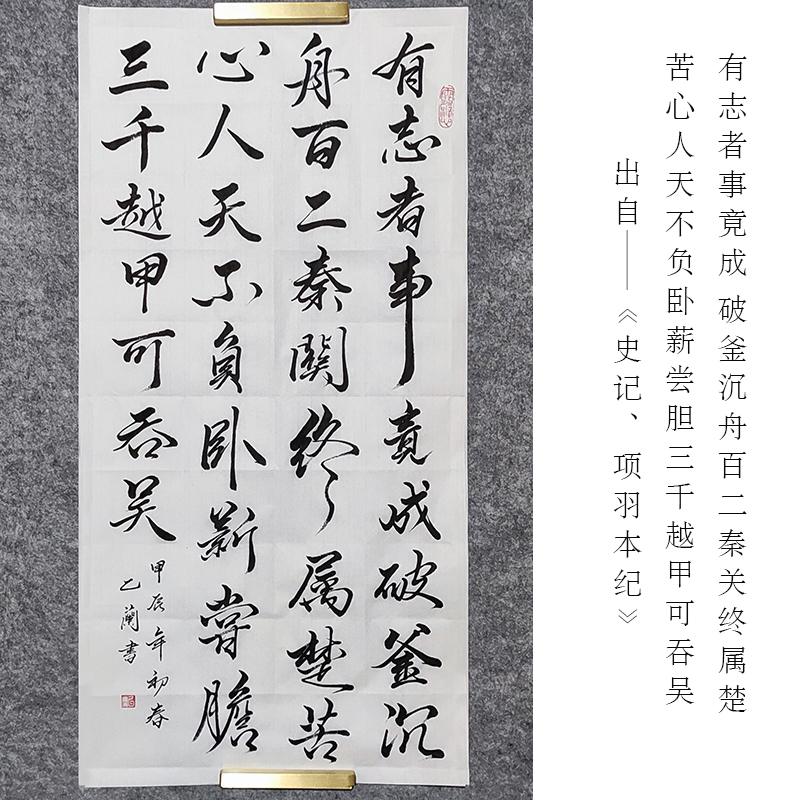 有志者事竟成破釜沉
舟百二秦關終属楚苦
心人天不負卧薪嘗膽
三千越甲可吞吴
甲辰年初春
乙蘭書
有志者事竟成 破釜沉舟百二秦关终属楚
苦心人天不负卧薪尝胆三千越甲可吞吴
出自——《史记、项羽本纪》